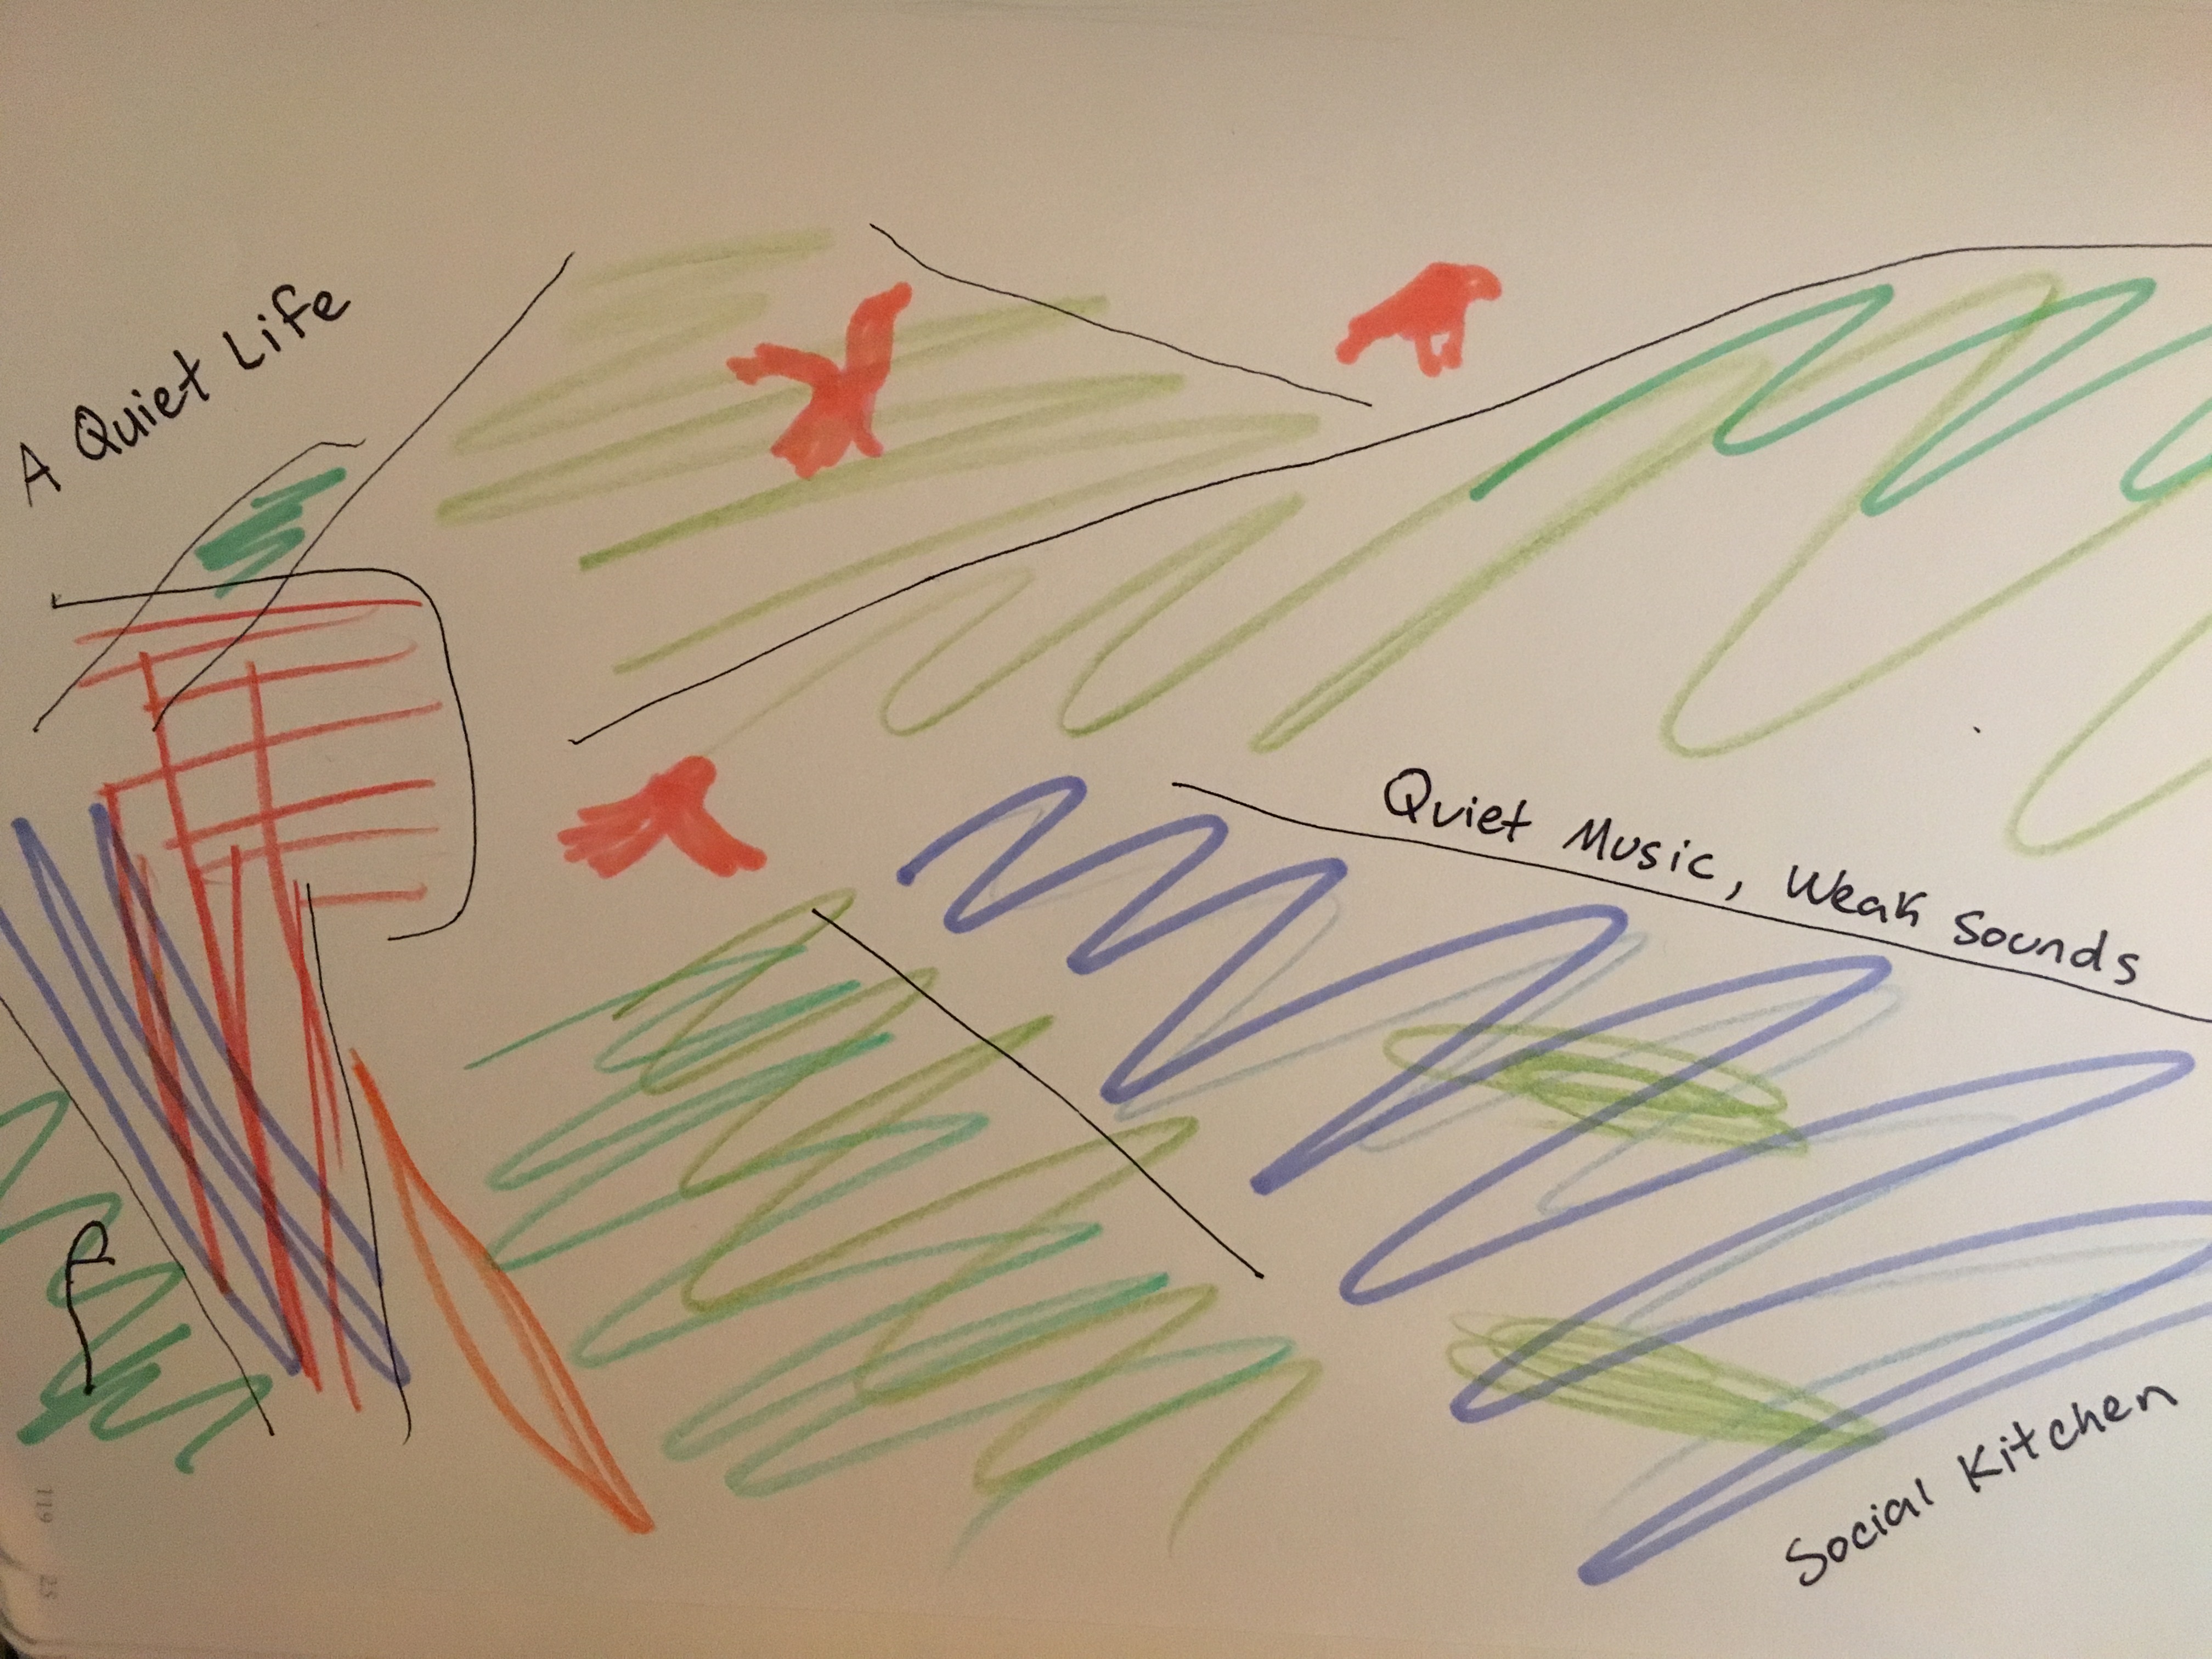 A Quiet Life
Quiet Music, Weak Sounds
Social Kitchen
119
25